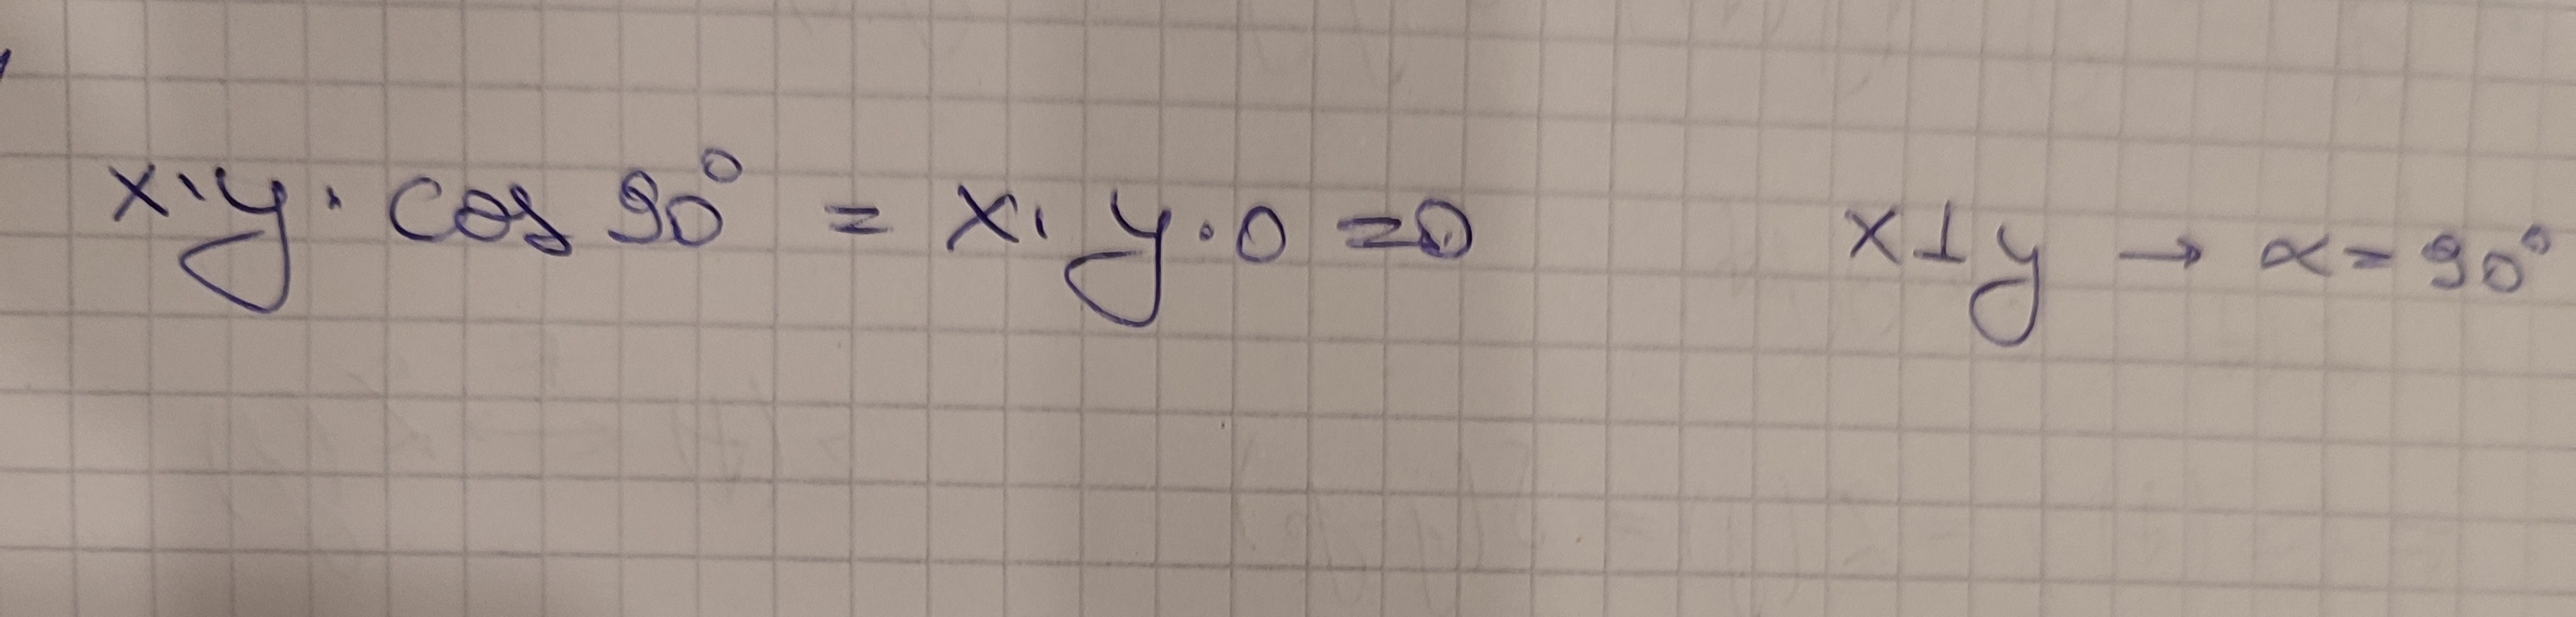 x·y·cos 90° = x·y·0 = 0 x⊥y → α = 90°